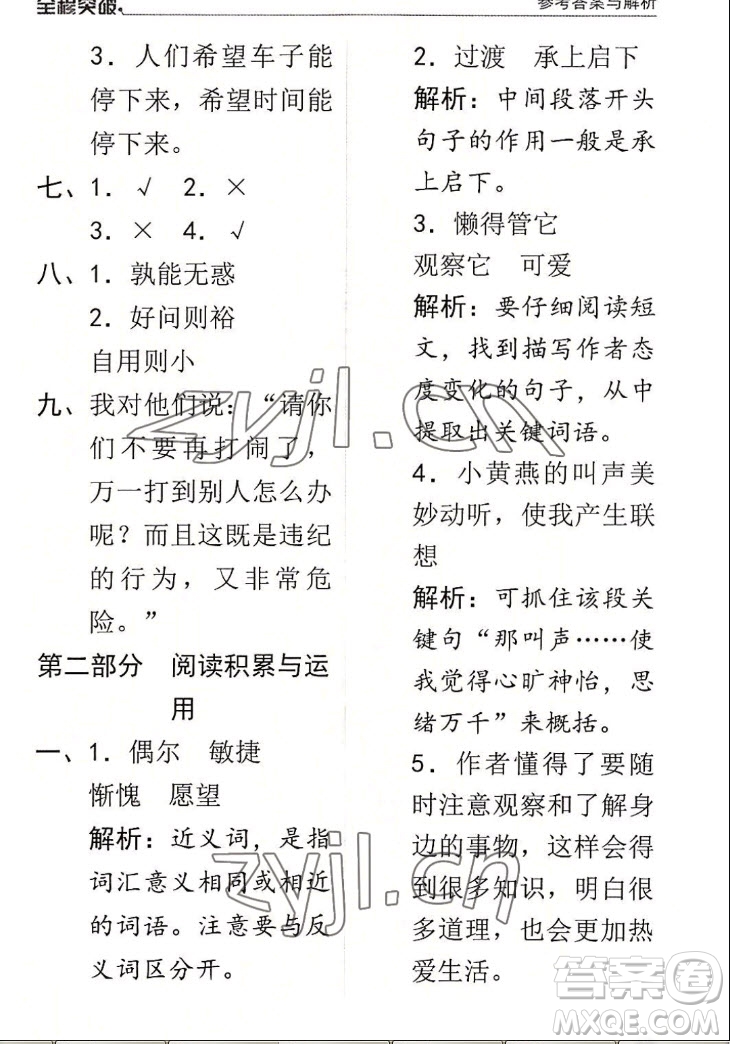 全程突破
参考答案与解析
3．人们希望车子能
停下来，希望时间能
停下来。
七、1．√　2．×
3．×　4．√
八、1．孰能无惑
2．好问则裕
自用则小
九、我对他们说：“请你
们不要再打闹了，
万一打到别人怎么办
呢？而且这既是违纪
的行为，又非常危
险。”
第二部分　阅读积累与运
用
一、1．偶尔　敏捷
惭愧　愿望
解析：近义词，是指
词汇意义相同或相近
的词语。注意要与反
义词区分开。
2．过渡　承上启下
解析：中间段落开头
句子的作用一般是承
上启下。
3．懒得管它
观察它　可爱
解析：要仔细阅读短
文，找到描写作者态
度变化的句子，从中
提取出关键词语。
4．小黄燕的叫声美
妙动听，使我产生联
想
解析：可抓住该段关
键句“那叫声……使
我觉得心旷神怡，思
绪万千”来概括。
5．作者懂得了要随
时注意观察和了解身
边的事物，这样会得
到很多知识，明白很
多道理，也会更加热
爱生活。
zyjl.cn
zyjl.cn
答案卷
MXQE.COM